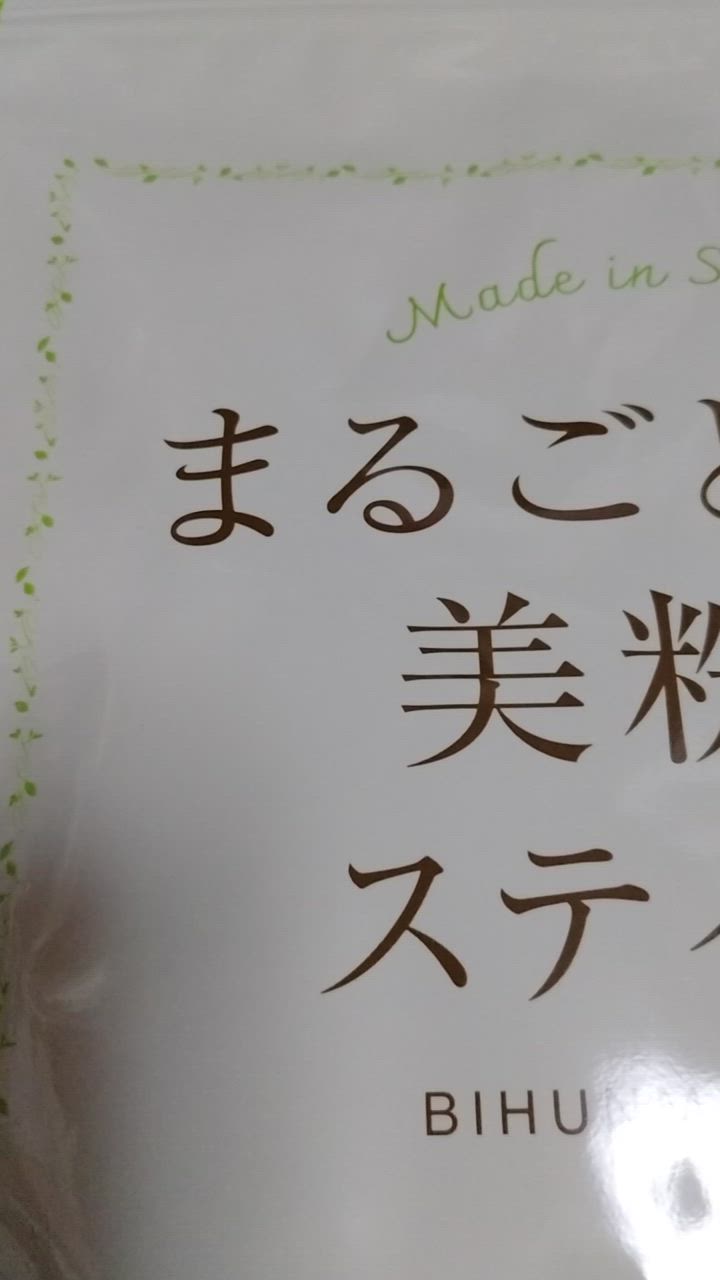 Made in S
まるごと
美粉
ステ
BIHU